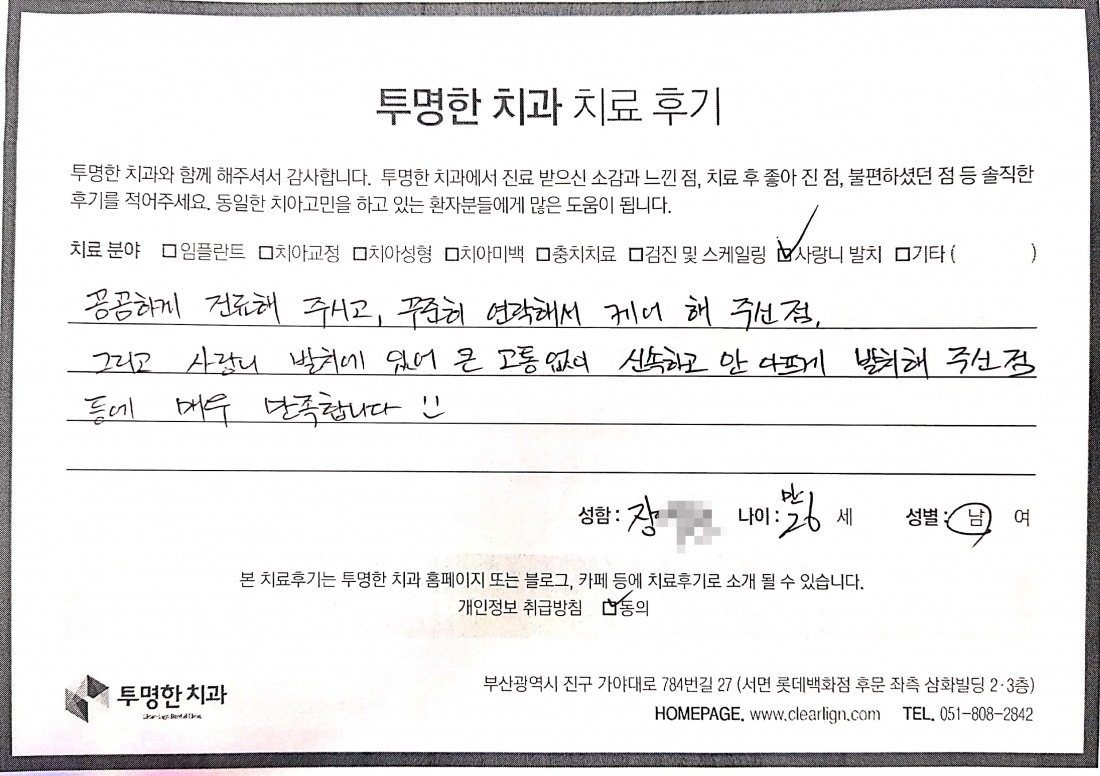 투명한 치과 치료 후기
투명한 치과와 함께 해주셔서 감사합니다. 투명한 치과에서 진료 받으신 소감과 느낀 점, 치료 후 좋아 진 점, 불편하셨던 점 등 솔직한
후기를 적어주세요. 동일한 치아고민을 하고 있는 환자분들에게 많은 도움이 됩니다.
치료 분야 □임플란트 □치아교정 □치아성형 □치아미백 □충치치료 □검진 및 스케일링 ☑사랑니 발치 □기타 ( )
꼼꼼하게 진료해 주시고, 꾸준히 연락해서 케어 해 주신 점,
그리고 사랑니 발치에 있어 큰 고통없이 신속하고 안 아프게 발치해 주신 점
등에 매우 만족합니다 :)
성함 : 장 나이 : 만 26 세 성별 : 남 여
본 치료후기는 투명한 치과 홈페이지 또는 블로그, 카페 등에 치료후기로 소개 될 수 있습니다.
개인정보 취급방침 ☑동의
투명한 치과
부산광역시 진구 가야대로 784번길 27 (서면 롯데백화점 후문 좌측 삼화빌딩 2·3층)
HOMEPAGE. www.clearlign.com TEL. 051-808-2842